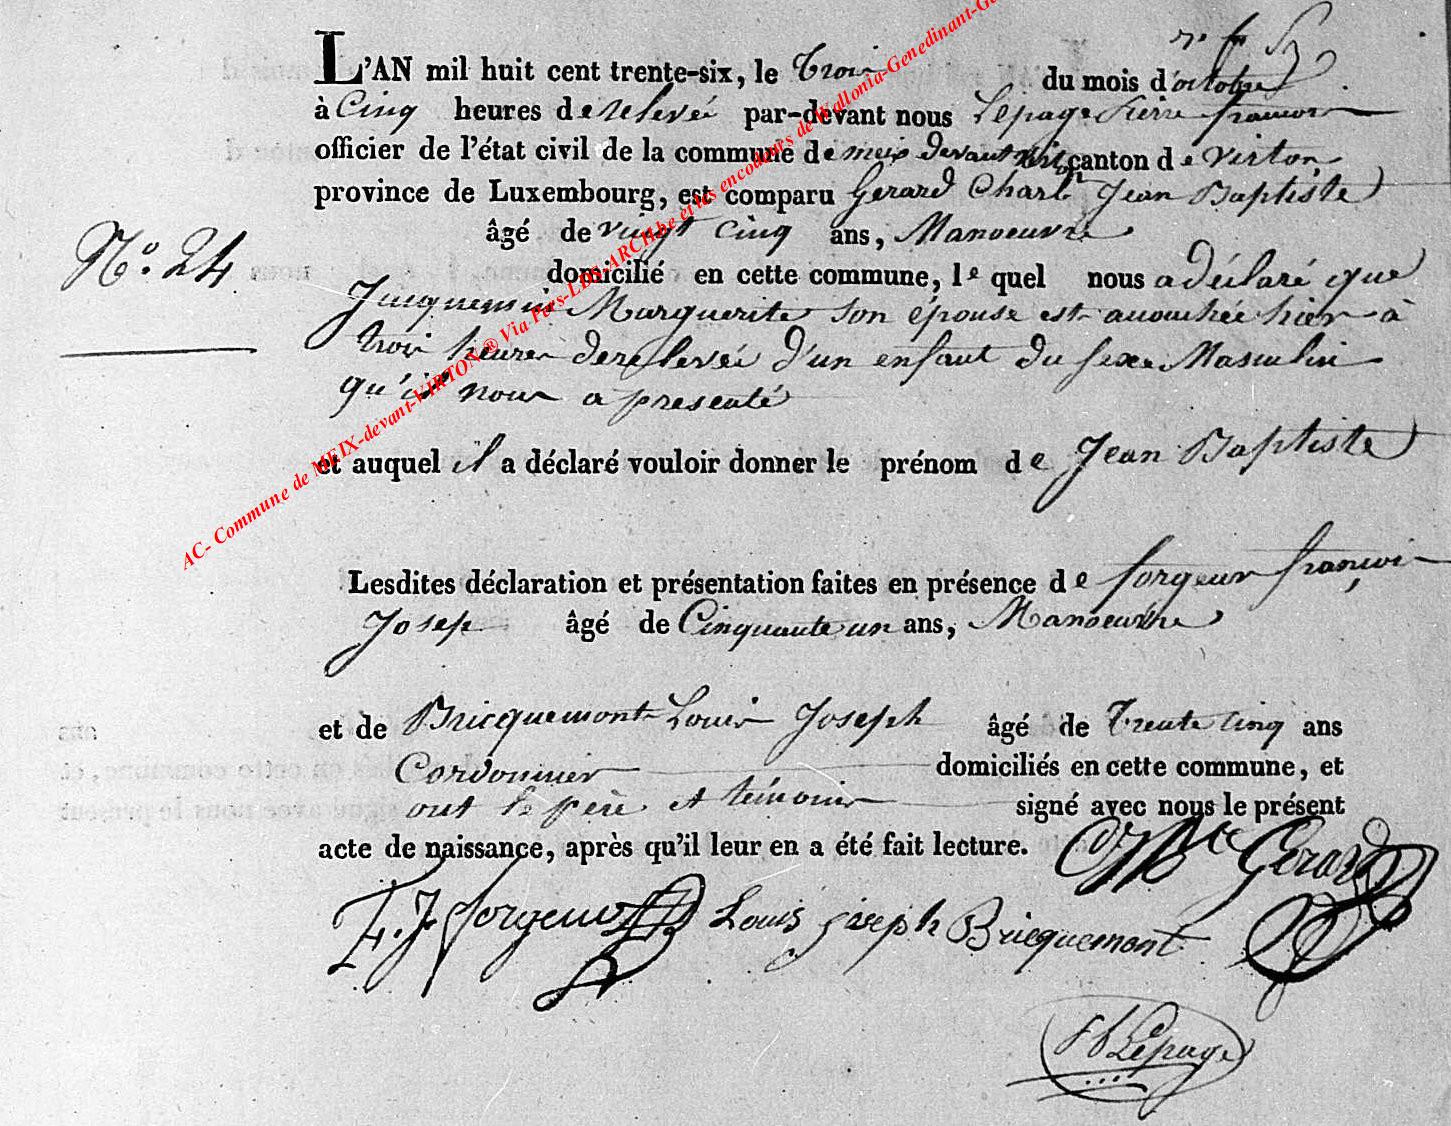 L'AN mil huit cent trente-six, le Trois du mois d'octobre
à Cinq heures de relevée par-devant nous Lepage Pierre françois
officier de l'état civil de la commune de meix devant virton canton de Virton,
province de Luxembourg, est comparu Gerard Charle Jean Baptiste
âgé de vingt cinq ans, Manoeuvre
N.o 24
domicilié en cette commune, le quel nous a déclaré que
Jacquemin Marguerite son épouse est accouchée hier à
trois heures de relevée d'un enfant du sexe Masculin
qu'il nous a presenté
et auquel il a déclaré vouloir donner le prénom de Jean Baptiste
Lesdites déclaration et présentation faites en présence de forgeur françois
Josep âgé de Cinquante un ans, Manoeuvre
et de Bricquemont Louis Joseph âgé de Trente cinq ans
Cordonnier domiciliés en cette commune, et
ont le père et témoins signé avec nous le présent
acte de naissance, après qu'il leur en a été fait lecture.
Gerard
F. J. forgeur Louis joseph Bricquemont
Lepage
AC- Commune de MEIX-devant-VIRTON ® Via Pers-LUX-ARCH.be et les encodeurs de Wallonia-Genedinant-Ge